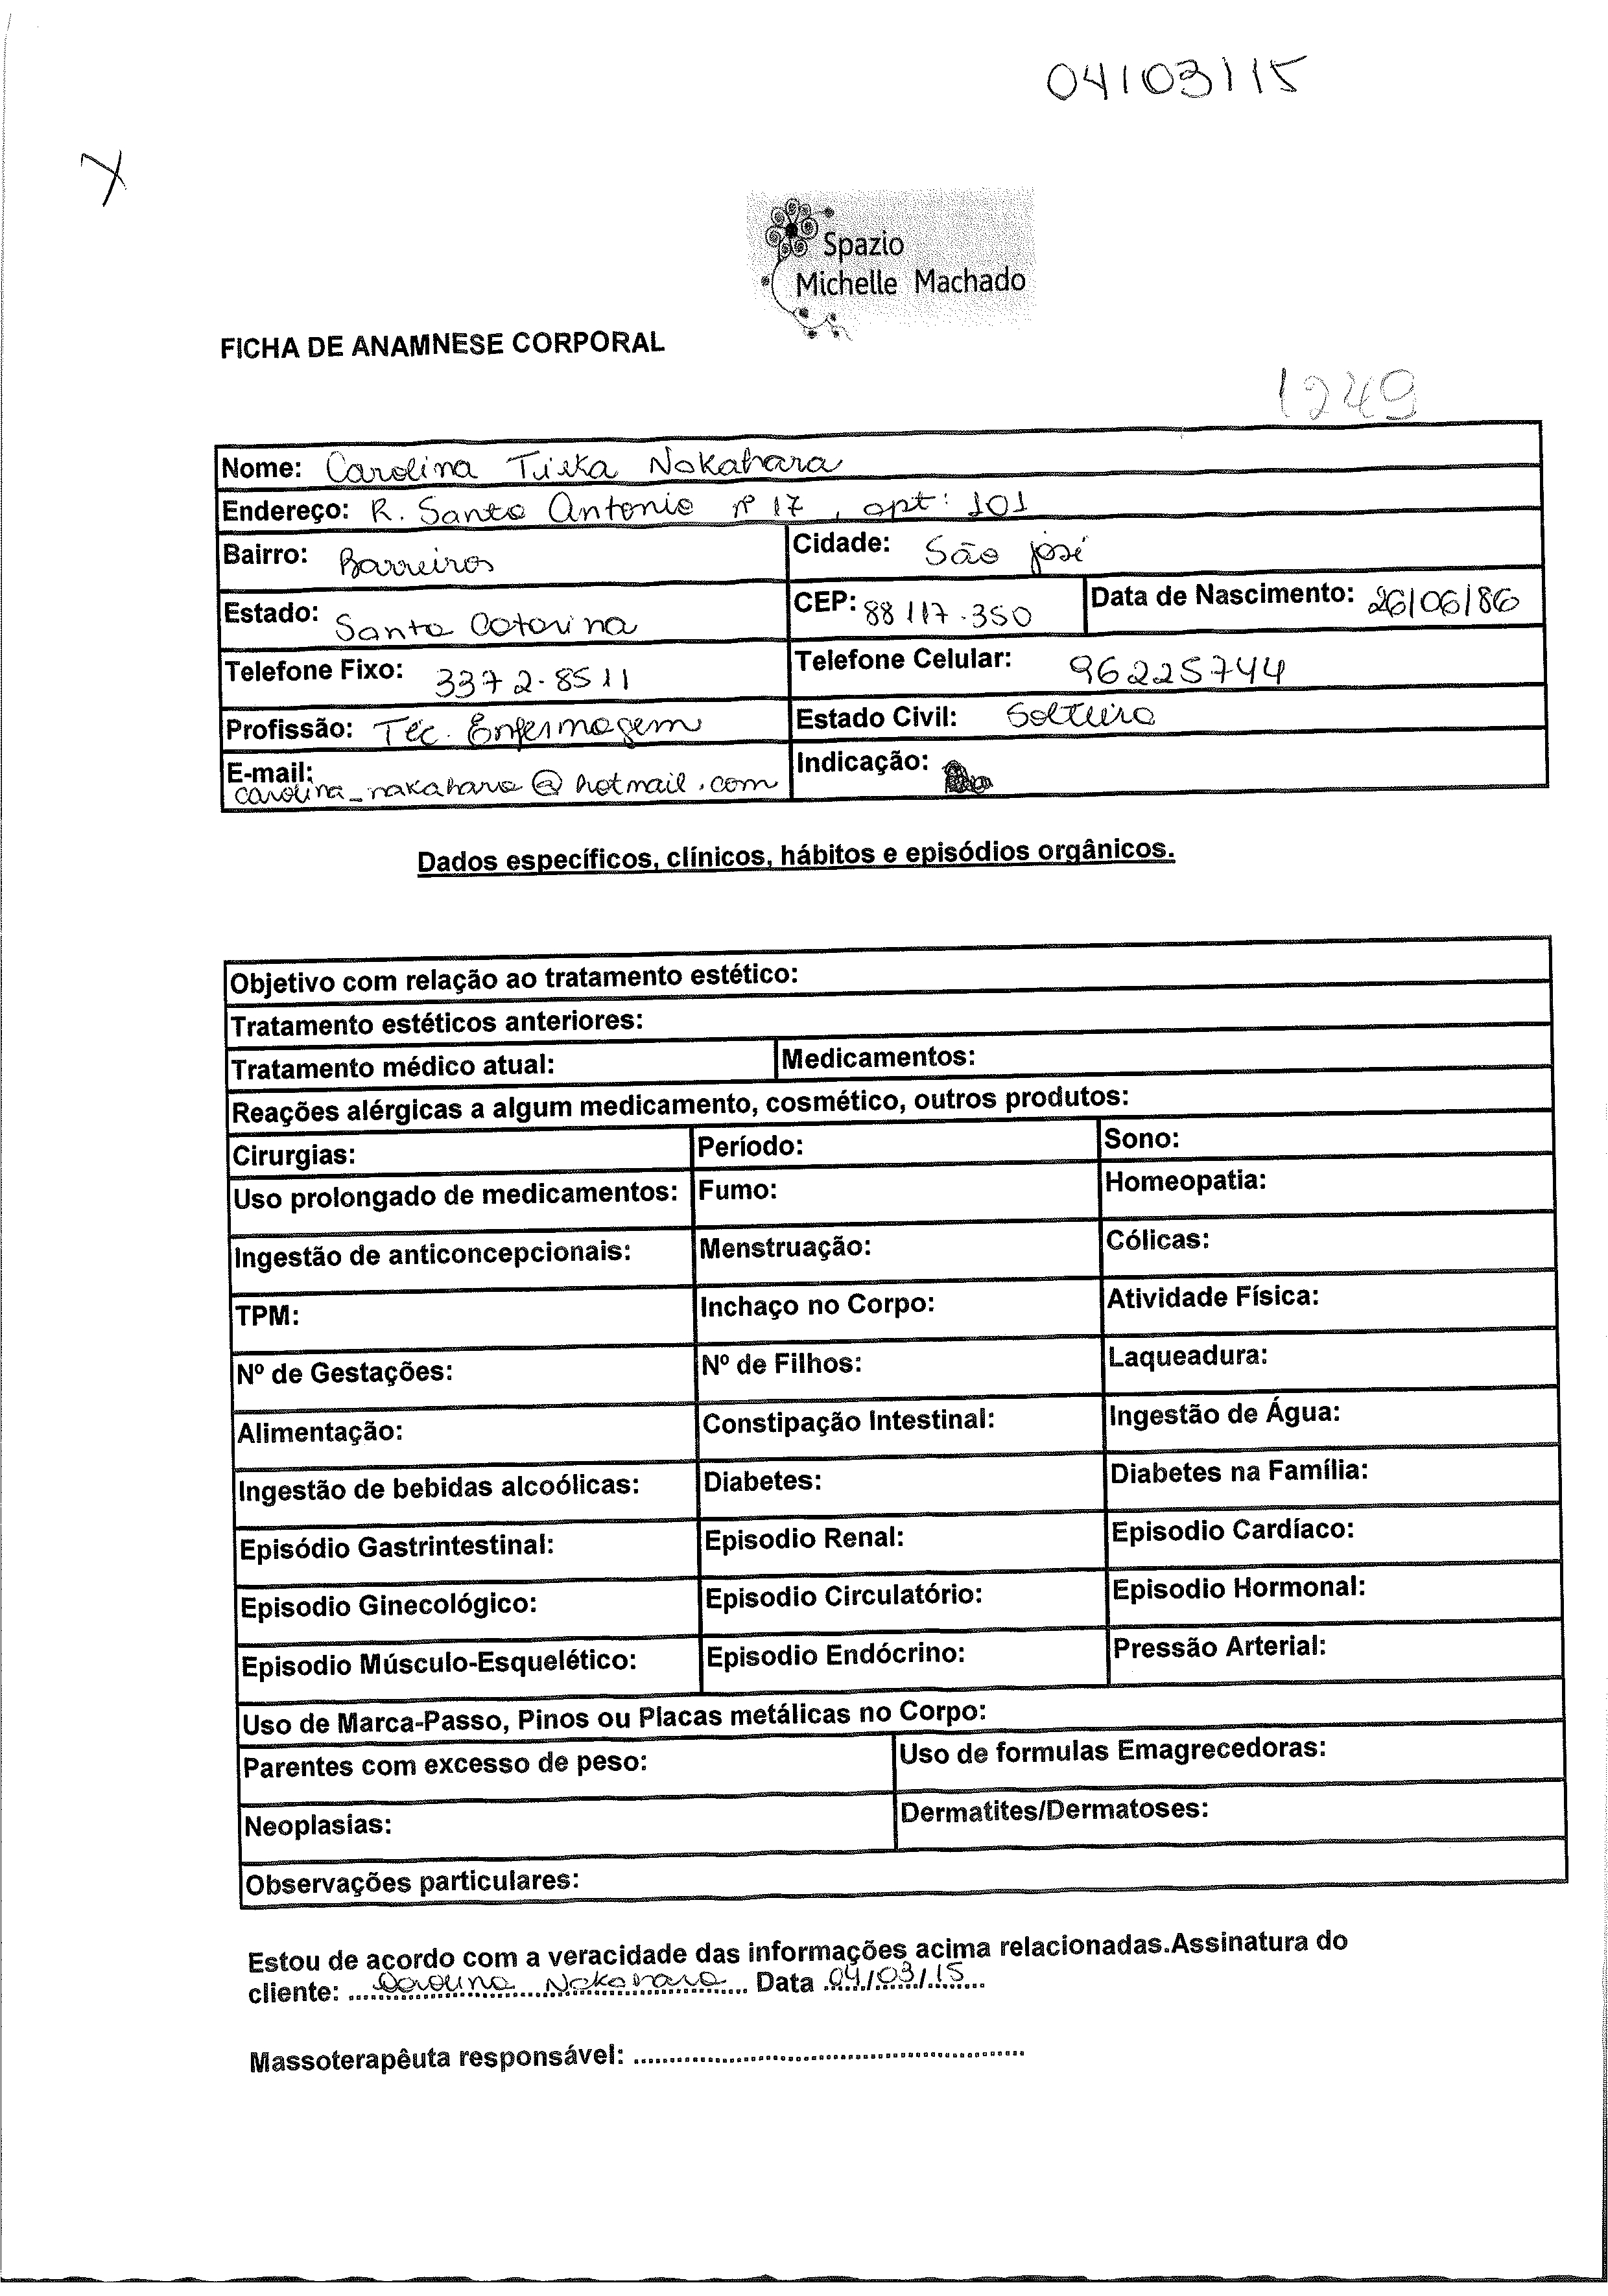 04/03/15
Spazio
Michelle Machado
FICHA DE ANAMNESE CORPORAL
1249
Nome: Carolina Nakahara
Endereço: R. Santo Antonio nº 17, apt: 101
Bairro: Barreiros Cidade: São José
Estado: Santa Catarina CEP: 88117-350 Data de Nascimento: 26/06/86
Telefone Fixo: 3372-8511 Telefone Celular: 96225744
Profissão: Téc. Enfermagem Estado Civil: Solteira
E-mail: carolina_nakahara@hotmail.com Indicação:
Dados específicos, clínicos, hábitos e episódios orgânicos.
Objetivo com relação ao tratamento estético:
Tratamento estéticos anteriores:
Tratamento médico atual: Medicamentos:
Reações alérgicas a algum medicamento, cosmético, outros produtos:
Cirurgias: Período: Sono:
Uso prolongado de medicamentos: Fumo: Homeopatia:
Ingestão de anticoncepcionais: Menstruação: Cólicas:
TPM: Inchaço no Corpo: Atividade Física:
Nº de Gestações: Nº de Filhos: Laqueadura:
Alimentação: Constipação Intestinal: Ingestão de Água:
Ingestão de bebidas alcoólicas: Diabetes: Diabetes na Família:
Episódio Gastrintestinal: Episodio Renal: Episodio Cardíaco:
Episodio Ginecológico: Episodio Circulatório: Episodio Hormonal:
Episodio Músculo-Esquelético: Episodio Endócrino: Pressão Arterial:
Uso de Marca-Passo, Pinos ou Placas metálicas no Corpo:
Parentes com excesso de peso: Uso de formulas Emagrecedoras:
Neoplasias: Dermatites/Dermatoses:
Observações particulares:
Estou de acordo com a veracidade das informações acima relacionadas.Assinatura do
cliente: Carolina Nakahara Data 04/03/15
Massoterapêuta responsável: